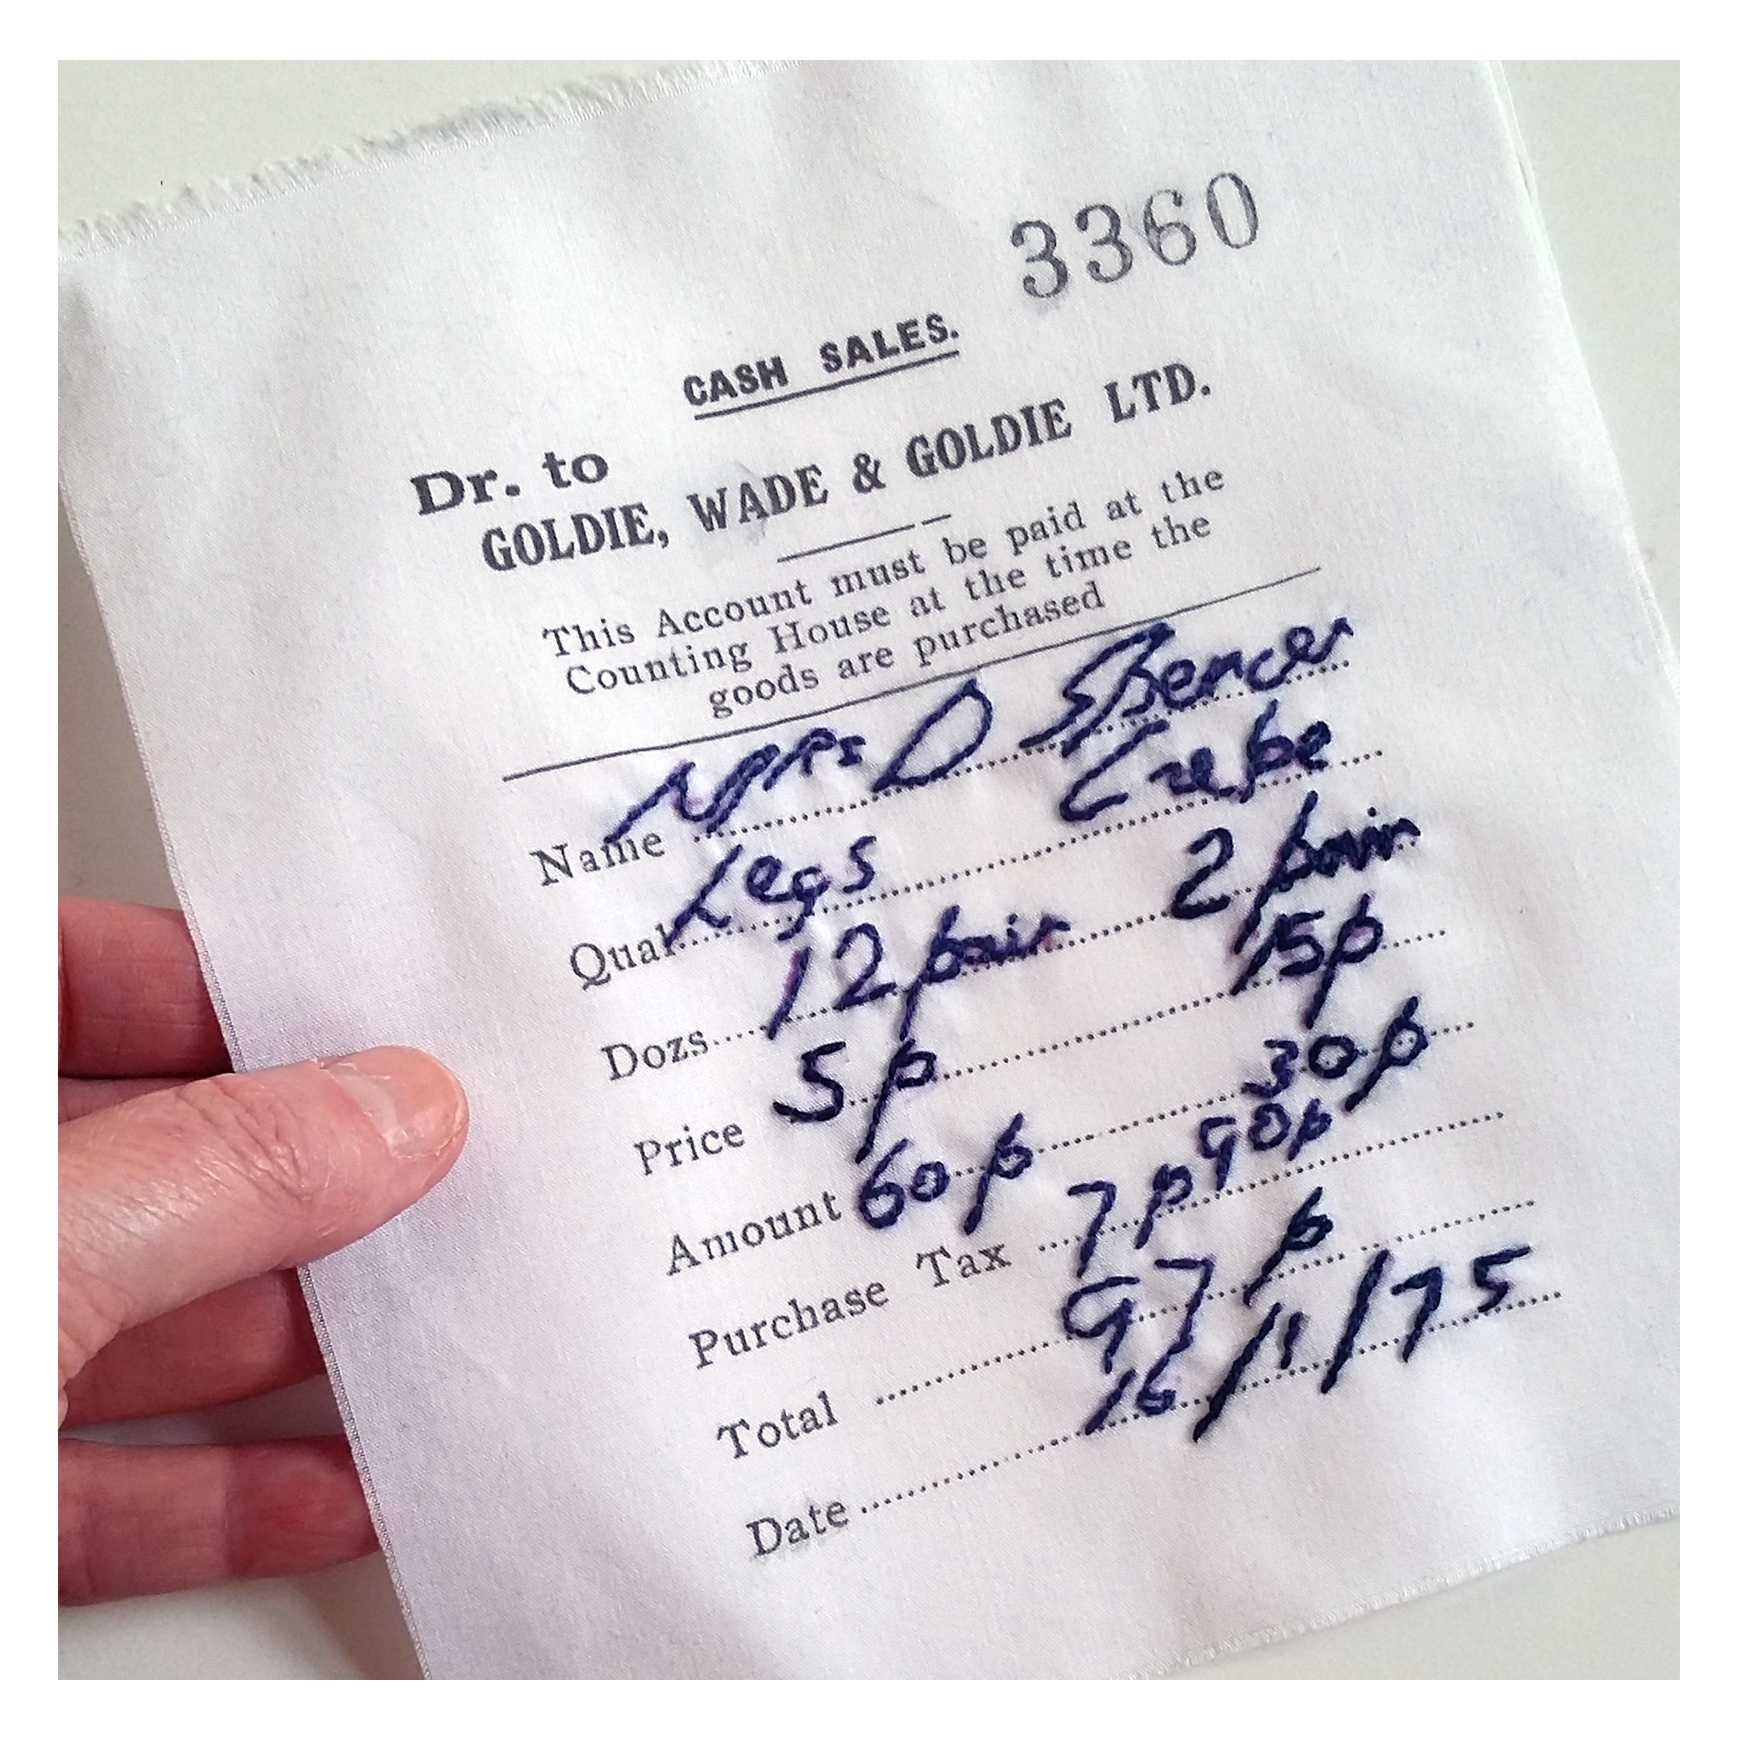 3360
CASH SALES.
Dr. to
GOLDIE, WADE & GOLDIE LTD.
This Account must be paid at the
Counting House at the time the
goods are purchased
Name Mrs D Spencer
Qual Legs Crepe
Dozs 12 pair 2 pair
Price 5p 15p
Amount 60p 30p
90p
Purchase Tax 7p
Total 97p
Date 16/11/75